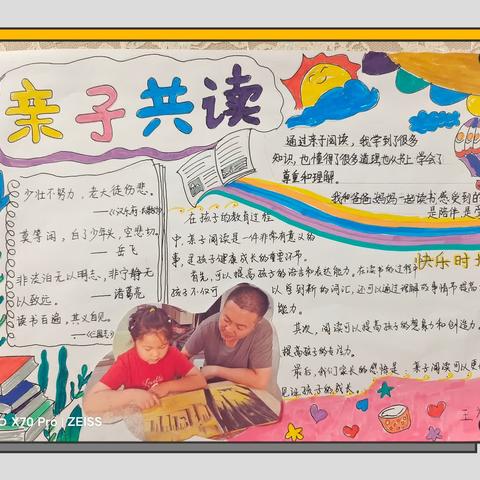 亲子共读
少壮不努力，老大徒伤悲。
——《汉乐府·长歌行》
莫等闲，白了少年头，空悲切。
——岳飞
非淡泊无以明志，非宁静无
以致远。
——诸葛亮
读书百遍，其义自见。
——《三国志》
通过亲子阅读，我学到了很多
知识，也懂得了很多道理也从书上学会了
尊重和理解。
我和爸爸妈妈一起读书感受到的
是陪伴，是
快乐时
在孩子的教育过程
中，亲子阅读是一件非常有意义的
事，是孩子健康成长的重要环节。
首先，可以提高孩子的语言和表达能力，在读书的过程
孩子不仅可
以学到新的词汇，还可以通过理解故事情节提高
能力。
其次，阅读可以提高孩子的想象力和创造力。
提高孩子的专注力。
最后，我们家长的感悟是，亲子阅读可以更
见证孩子的成长。
王
X70 Pro | ZEISS